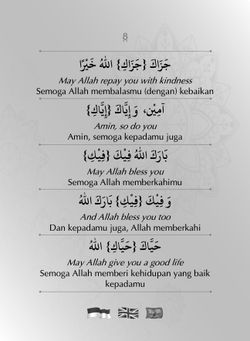 8
جَزَاكَ {جَزَاكِ} اللهُ خَيْرًا
May Allah repay you with kindness
Semoga Allah membalasmu (dengan) kebaikan
آمِيْن، وَ إِيَّاكَ {إِيَّاكِ}
Amin, so do you
Amin, semoga kepadamu juga
بَارَكَ اللهُ فِيْكَ {فِيْكِ}
May Allah bless you
Semoga Allah memberkahimu
وَ فِيْكَ {فِيْكِ} بَارَكَ اللهُ
And Allah bless you too
Dan kepadamu juga, Allah memberkahi
حَيَّاكَ {حَيَّاكِ} اللهُ
May Allah give you a good life
Semoga Allah memberi kehidupan yang baik
kepadamu